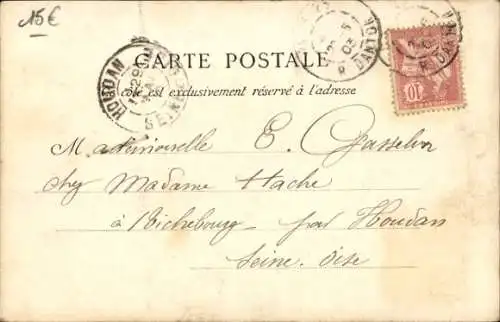 15€
CARTE POSTALE
Ce côté est exclusivement réservé à l'adresse
HOUDAN
SEINE
R. DANTON
10
Mademoiselle E. Gasselin
chez Madame Hache
à Richebourg par Houdan
Seine. Oise